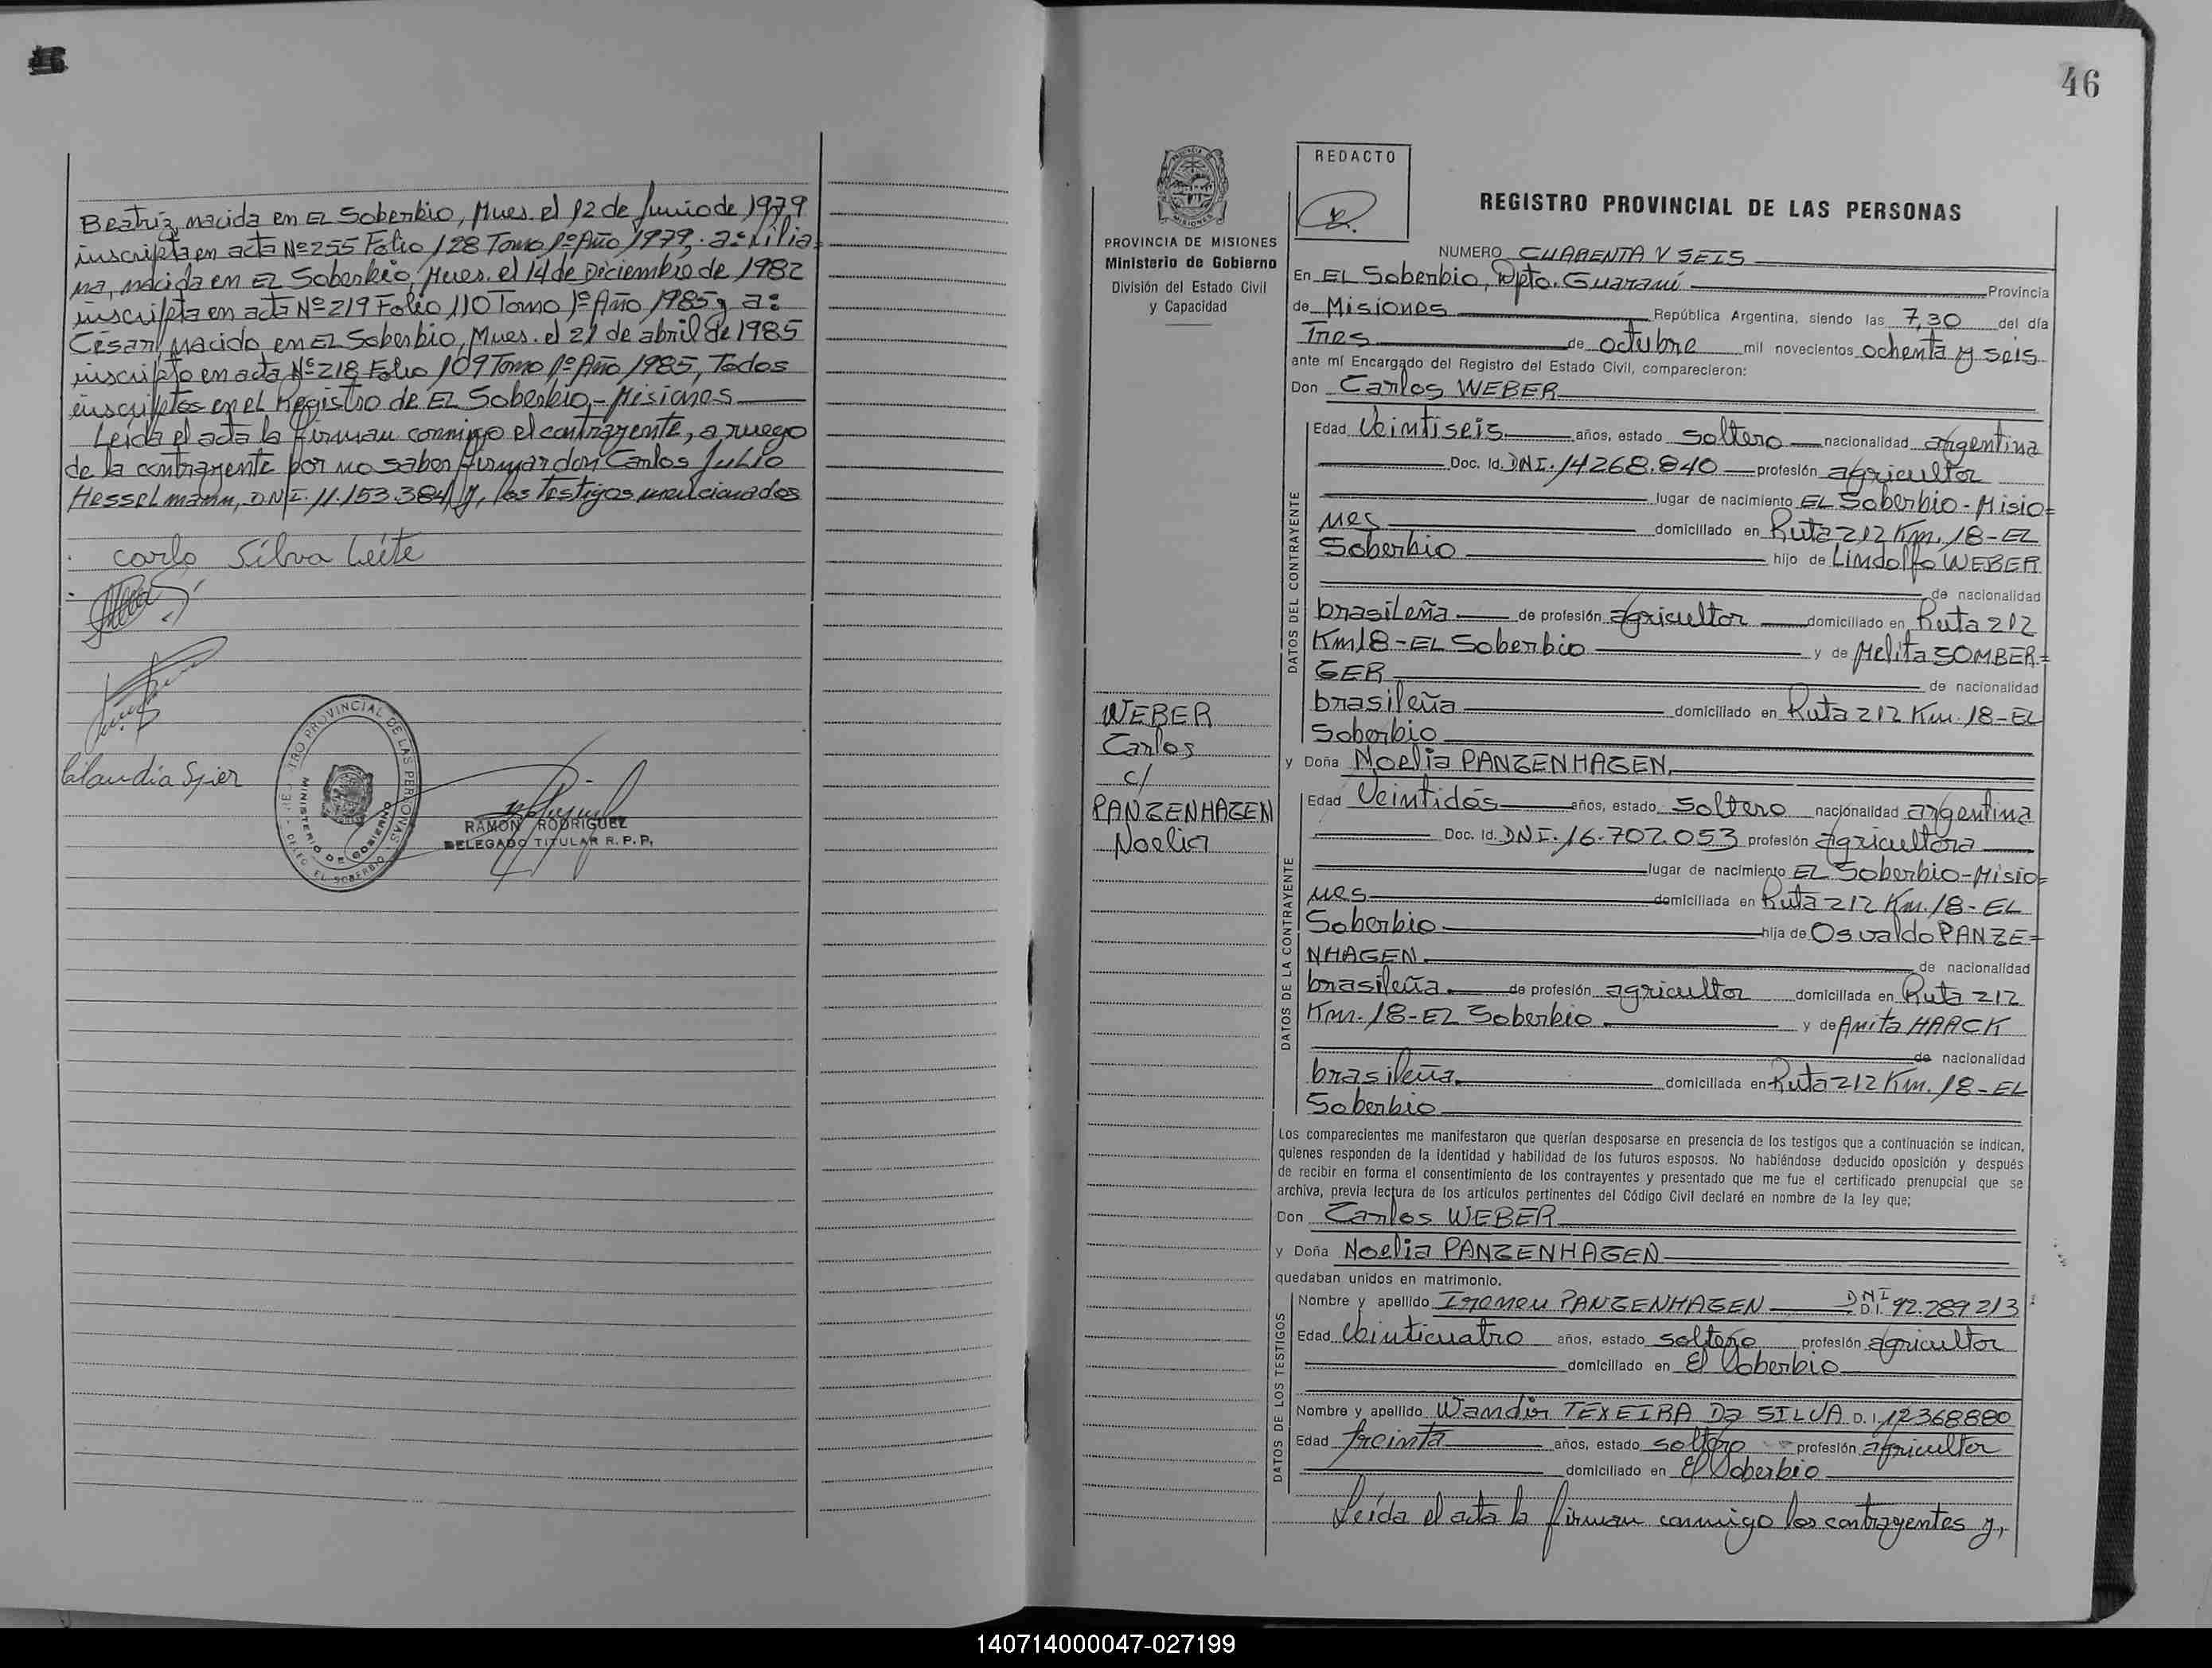 Beatriz, nacida en EL Soberbio, Mnes. el 12 de Junio de 1979
inscripta en acta Nº 255 Folio 128 Tomo 1º Año 1979; a: Lilia=
na, nacida en EL Soberbio, Mnes. el 14 de Diciembre de 1982
inscripta en acta Nº 219 Folio 110 Tomo 1º Año 1985 y a:
César, nacido en EL Soberbio, Mnes. el 21 de abril de 1985
inscripto en acta Nº 218 Folio 109 Tomo 1º Año 1985, Todos
inscriptos en el Registro de EL Soberbio - Misiones
Leída el acta la firman conmigo el contrayente, a ruego
de la contrayente por no saber firmar don Carlos Julio
Hesselmann, DNI. 11.153.384 y, los testigos mencionados
carlo Silva Leite
Claudia Spier
REGISTRO PROVINCIAL DE LAS PERSONAS
MINISTERIO DE GOBIERNO
DELEG. EL SOBERBIO
RAMON RODRIGUEZ
DELEGADO TITULAR R. P. P.
46
REDACTO
PROVINCIA DE MISIONES
Ministerio de Gobierno
División del Estado Civil
y Capacidad
WEBER
Carlos
c/
PANZENHAGEN
Noelia
REGISTRO PROVINCIAL DE LAS PERSONAS
NUMERO CUARENTA Y SEIS
En EL Soberbio, Dpto. Guaraní Provincia
de Misiones República Argentina, siendo las 7,30 del día
Tres de octubre mil novecientos ochenta y seis
ante mí Encargado del Registro del Estado Civil, comparecieron:
Don Carlos WEBER
DATOS DEL CONTRAYENTE
Edad Veintiseis años, estado soltero nacionalidad argentina
Doc. Id. DNI. 14268.840 profesión agricultor
lugar de nacimiento EL Soberbio - Misio=
nes domiciliado en Ruta 212 Km. 18 - EL
Soberbio hijo de Lindolfo WEBER
de nacionalidad
brasileña de profesión agricultor domiciliado en Ruta 212
Km 18 - EL Soberbio y de Melita SOMBER=
GER de nacionalidad
brasileña domiciliado en Ruta 212 Km. 18 - EL
Soberbio
y Doña Noelia PANZENHAGEN
DATOS DE LA CONTRAYENTE
Edad Veintidós años, estado soltero nacionalidad argentina
Doc. Id. DNI. 16.702.053 profesión agricultora
lugar de nacimiento EL Soberbio - Misio=
nes domiciliada en Ruta 212 Km. 18 - EL
Soberbio hija de Osvaldo PANZE=
NHAGEN de nacionalidad
brasileña de profesión agricultor domiciliada en Ruta 212
Km. 18 - EL Soberbio y de Anita HAACK
de nacionalidad
brasileña domiciliada en Ruta 212 Km. 18 - EL
Soberbio
Los comparecientes me manifestaron que querían desposarse en presencia de los testigos que a continuación se indican,
quienes responden de la identidad y habilidad de los futuros esposos. No habiéndose deducido oposición y después
de recibir en forma el consentimiento de los contrayentes y presentado que me fue el certificado prenupcial que se
archiva, previa lectura de los artículos pertinentes del Código Civil declaré en nombre de la ley que:
Don Carlos WEBER
y Doña Noelia PANZENHAGEN
quedaban unidos en matrimonio.
DATOS DE LOS TESTIGOS
Nombre y apellido Ireneu PANZENHAGEN DNI D.I. 92.289213
Edad Veinticuatro años, estado soltero profesión agricultor
domiciliado en El Soberbio
Nombre y apellido Wandir TEXEIRA Da SILVA D. I. 12368880
Edad treinta años, estado soltero profesión agricultor
domiciliado en El Soberbio
Leída el acta la firman conmigo los contrayentes y,
140714000047-027199